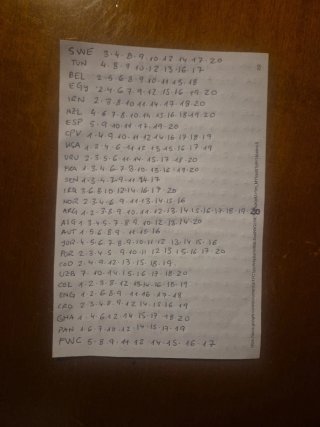 SWE 3·4·8·9·10·12·14·17·20
TUN 4·8·9·10·12·13·16·17
BEL 2·5·6·8·9·10·11·15·18
EGY 2·4·6·7·9·12·15·16·19·20
IRN 2·3·8·10·11·14·17·18·20
NZL 4·6·7·8·10·14·15·16·18·19·20
ESP 5·9·10·11·17·19·20
CPV 1·4·9·10·11·12·14·16·17·18·19
URU 2·3·5·6·11·14·15·17·18·20
FRA 1·3·4·6·7·8·10·13·16·19·20
SEN
IRQ 3·6·8·10·12·14·16·17·20
NOR 2·3·4·6·9·11·13·14·15·16
ARG 1·2·3·6·9·10·11·12·13·14·15·16·17·18·19·20
ALG 1·3·4·5·7·8·9·10·12·13·14·20
AUT 1·5·6·8·9·11·15·16
JOR 4·5·6·7·8·9·10·11·12·13·14·15·16
POR 2·3·4·5·9·10·11·12·13·15·16·17·20
COD 2·4·9·12·13·15·18·19
UZB 7·10·14·15·16·17·18·20
COL
ENG 1·2·6·8·9·11·16·17·18
CRO 2·3·4·8·9·12·14·15·16·19
GHA 1·4·6·12·14·15·17·18·20
PAN 1·6·7·10·12·14·15·17·19
FWC 5·8·9·11·13·14·15·16·17